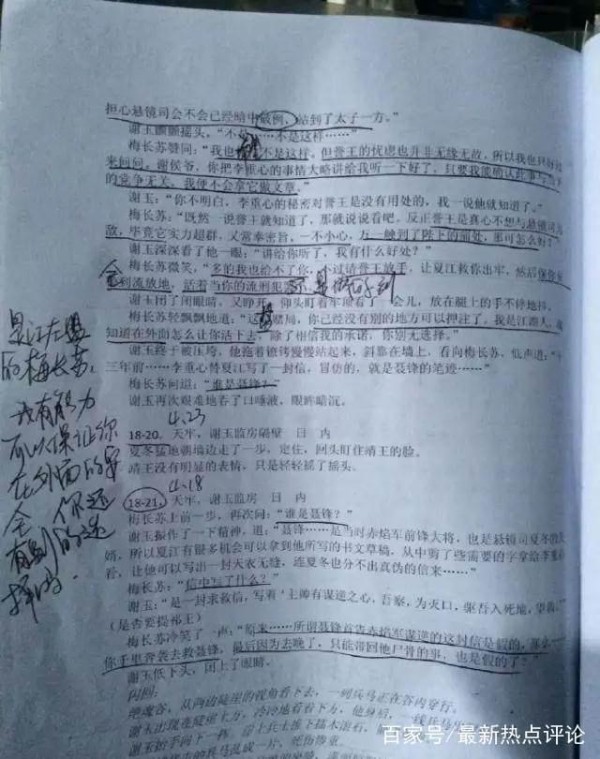 担心悬镜司会不会已经暗中破例，站到了太子一方。”
谢玉颤颤摇头，“不是……不是这样……”
梅长苏赞同：“我也 不是这样。但誉王的忧虑也并非无缘无故，所以我也只好过
来问问。谢侯爷，你把李重心的事情大略讲给我听一下好了，只要我能确认此事与当下
的竞争无关，我便不会拿它做文章。”
谢玉：“你不明白，李重心的秘密对誉王是没有用处的，我一说他就知道了。”
梅长苏：“既然一说誉王就知道了，那就说说看吧。反正誉王是真心不想与悬镜司为
敌，毕竟它实力超群，又常奉密旨，一不小心，万一碰到了陛下的痛处，那可怎么好？”
谢玉深深看了他一眼：“讲给你听了，我有什么好处？”
梅长苏微笑，“多的我也给不了你，不过请誉王放手，让夏江救你出牢，然后
到流放地，活着当你的流刑犯
谢玉闭了闭眼睛，又睁开，仰头盯着牢顶看了一会儿，放在腿上的手不停地抖。
梅长苏轻飘飘地道：“这 赌局，你已经没有别的地方可以押注了。我是江湖人，我
知道在外面怎么让你活下去，除了相信我的承诺，你别无选择。”
谢玉终于被压垮，他拖着镣铐慢慢站起来，斜靠在墙上，看向梅长苏，低声道：“十
三年前……李重心替夏江写了一封信，冒仿的，就是聂锋的笔迹……”
梅长苏问道：“谁是聂锋？”
谢玉再次艰难地吞了口唾液，眼眸暗沉。
4.23
18-20. 天牢，谢玉监房隔壁 日 内
夏冬猛地朝墙边走了一步，定住，回头盯住靖王的脸。
靖王没有明显的表情，只是轻轻摇了摇头。
4.18
18-21. 天牢，谢玉监房 日 内
梅长苏上前一步，再次问：“谁是聂锋？”
谢玉振作了一下精神，道：“聂锋……是当时赤焰军前锋大将，也是悬镜司夏冬的夫
婿，所以夏江有很多机会可以拿到他所写的书文草稿，从中剪了些需要的字拿给李重心
看，让他可以写出一封天衣无缝，连夏冬也分不出真伪的信来……”
梅长苏：“信中写了什么？”
谢玉：“是一封求救信，写着‘主帅有谋逆之心，吾察，为灭口，驱吾入死地，望救’”
（是否要提祁王）
梅长苏冷笑了一声：“原来……所谓聂锋首告赤焰军谋逆的这封信是假的，那么
你千里奔袭去救聂锋，最后因为去晚了，只能带回他尸骨的事，也是假的了？”
谢玉低下头，闭上了眼睛。
闪回：
绝魂谷，从两边崖壁的视角看下去，一列兵马正在谷内穿行。
是江左盟
的梅长苏，
我有能力
可以保证你
在外面的安
全 你还
有别的选
择吗.
百家号/最新热点评论